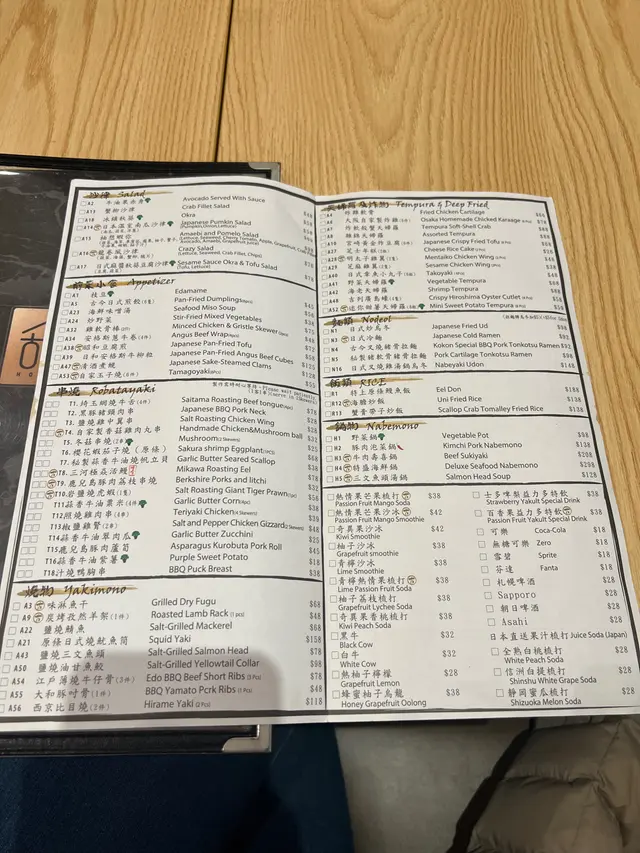 沙律 Salad
A2 牛油果赤身 Avocado Served With Sauce
A13 蟹籽沙律 Crab Fillet Salad
A18 冰鎮秋葵 Okra
A14 日本溫室南瓜沙律 Japanese Pumkin Salad
(Pumpkin,Onion,Lettuce)
A15 柚惑蝦你 Amaebi and Pomelo Salad
A16 龍卷風沙律 Crazy Salad
(Lettuce, Seaweed, Crab Fillet, Chips)
A17 日式麻醬秋葵豆腐沙律 Sesame Sauce Okra & Tofu Salad
(Tofu, Lettuce)
前菜小食 Appetizer
A1 枝豆 Edamame
A5 古今日式煎餃 Pan-Fried Dumplings $45
A23 海鮮味噌湯 Seafood Miso Soup $58
A24 炒野菜 Stir-Fried Mixed Vegetables
A32 雞軟骨棒 Minced Chicken & Gristle Skewer
A34 安格斯蔥牛卷 Angus Beef Wrap
A38 Japanese Pan-Fried Tofu
A39 日和安格斯牛柳粒 Japanese Pan-Fried Angus Beef Cubes $128
A47 清酒煮蜆 Japanese Sake-Steamed Clams $125
A53 自家玉子燒 Tamagoyaki $55
串燒 Robatayaki
T1. 琦玉網燒牛舌 Saitama Roasting Beef tongue
T2. 黑豚豬頸肉串 Japanese BBQ Pork Neck $78
T3. 鹽燒雞中翼串 Salt Roasting Chicken Wing $28
T4. 自家製香菇雞肉丸串 Handmade Chicken&Mushroom ball $32
T5. 冬菇串燒 Mushroom $32
T6. 櫻花蝦茄子燒(原條) Sakura shrimp Eggplant
T7. 秘製蒜香牛油燒帆立貝 Garlic Butter Seared Scollop $68
T8. 三河極焱活鰻 Mikawa Roasting Eel $138
T9. 鹿兒島豚肉荔枝串燒 Berkshire Porks and litchi $78
T10. 岩鹽燒虎蝦 Salt Roasting Giant Tiger Prawn $58
T11 蒜香牛油粟米 Garlic Butter Corn $36
T12 照燒雞肉串 Teriyaki Chicken $38
T13 椒鹽雞腎 Salt and Pepper Chicken Gizzard $48
T14 蒜香牛油翠肉瓜 Garlic Butter Zucchini $25
T15 鹿兒島豚肉蘆筍 Asparagus Kurobuta Pork Roll $45
T16 蒜香牛油紫薯 Purple Sweet Potato $18
T18 汁燒鴨胸串 BBQ Puck Breast $38
燒物 Yakimono
A3 味淋魚干 Grilled Dry Fugu $68
A9 炭烤孜然羊架(1件) Roasted Lamb Rack (1 pcs) $48
A22 鹽燒鯖魚 Salt-Grilled Mackerel $68
A21 原條日式燒魷魚筒 Squid Yaki $158
A43 鹽燒三文魚頭 Salt-Grilled Salmon Head $78
A50 鹽燒油甘魚鮫 Salt-Grilled Yellowtail Collar $98
A54 江戶薄燒牛仔骨(3件) Edo BBQ Beef Short Ribs (3 Pcs) $78
A55 大和豚吋骨(1件) BBQ Yamato Pcrk Ribs (1 Pcs) $48
A56 西京比目燒(2件) Hirame Yaki (2 Pcs) $118
天婦羅及炸物 Tempura & Deep Fried
A4 炸雞軟骨 Fried Chicken Cartilage
A6 大阪自家製炸雞 Osaka Homemade Chicken Karaage
A7 炸軟殼蟹天婦羅 Tempura Soft-Shell Crab
A8 雜錦天婦羅 Assorted Tempura
A10 宮崎黃金炸豆腐 Japanese Crispy Fried Tofu
A27 芝士年糕天婦羅 Cheese Rice Cake
A28 明太子雞翼 Mentaiko Chicken Wing
A29 芝麻雞翼 Sesame Chicken Wing
A30 日式章魚小丸子 Takoyaki
A41 野菜天婦羅 Vegetable Tempura
A42 海老天婦羅 Shrimp Tempura
A44 吉列廣島蠔 Crispy Hiroshima Oyster Cutlet
A52 迷你甜薯天婦羅 Mini Sweet Potato Tempura
麵類 Nodeol
N1 日式炒烏冬 Japanese Fried Ud $68
N3 日式冷麵 Japanese Cold Ramen
N4 古今叉燒豬骨拉麵 Kokon Special BBQ Pork Tonkotsu Ramen $92
N5 秘製豬軟骨豬骨拉麵 Pork Cartilage Tonkotsu Ramen $98
N16 日式叉燒雞湯鍋烏冬 Nabeyaki Udon $148
飯類 RICE
R1 特上原條鰻魚飯 Eel Don $188
R12 海膽炒飯 Uni Fried Rice $138
R13 蟹膏帶子炒飯 Scallop Crab Tomalley Fried Rice $138
鍋物 Nabemono
H1 野菜鍋 Vegetable Pot $98
H2 豚肉泡菜鍋 Kimchi Pork Nabemono $138
H3 牛肉壽喜鍋 Beef Sukiyaki $208
H4 特盛海鮮鍋 Deluxe Seafood Nabemono $298
H5 三文魚頭湯鍋 Salmon Head Soup $128
熱情果芒果梳打 $38
Passion Fruit Mango Soda
熱情果芒果沙冰 $42
Passion Fruit Mango Smoothie
奇異果沙冰 $42
Kiwi Smoothie
柚子沙冰 $38
Grapefruit smoothie
青檸沙冰 $38
Lime Smoothie
青檸熱情果梳打 $38
Lime Passion Fruit Soda
柚子荔枝梳打 $38
Grapefruit Lychee Soda
奇異果香桃梳打 $38
Kiwi Peach Soda
黑牛 $32
Black Cow
白牛 $32
White Cow
熱柚子檸檬 $28
Grapefruit Lemon
蜂蜜柚子烏龍 $38
Honey Grapefruit Oolong
士多啤梨益力多特飲 $38
Strawberry Yakult Special Drink
百香果益力多特飲 $38
Passion Fruit Yakult Special Drink
可樂 Coca-Cola $18
無糖可樂 Zero $18
雪碧 Sprite $18
芬達 Fanta $18
札幌啤酒 $28
Sapporo
朝日啤酒 $28
Asahi
日本直送果汁梳打 Juice Soda (Japan)
全熟白桃梳打 $28
White Peach Soda
信洲白提梳打 $28
Shinshu White Grape Soda
靜岡蜜瓜梳打 $28
Shizuoka Melon Soda